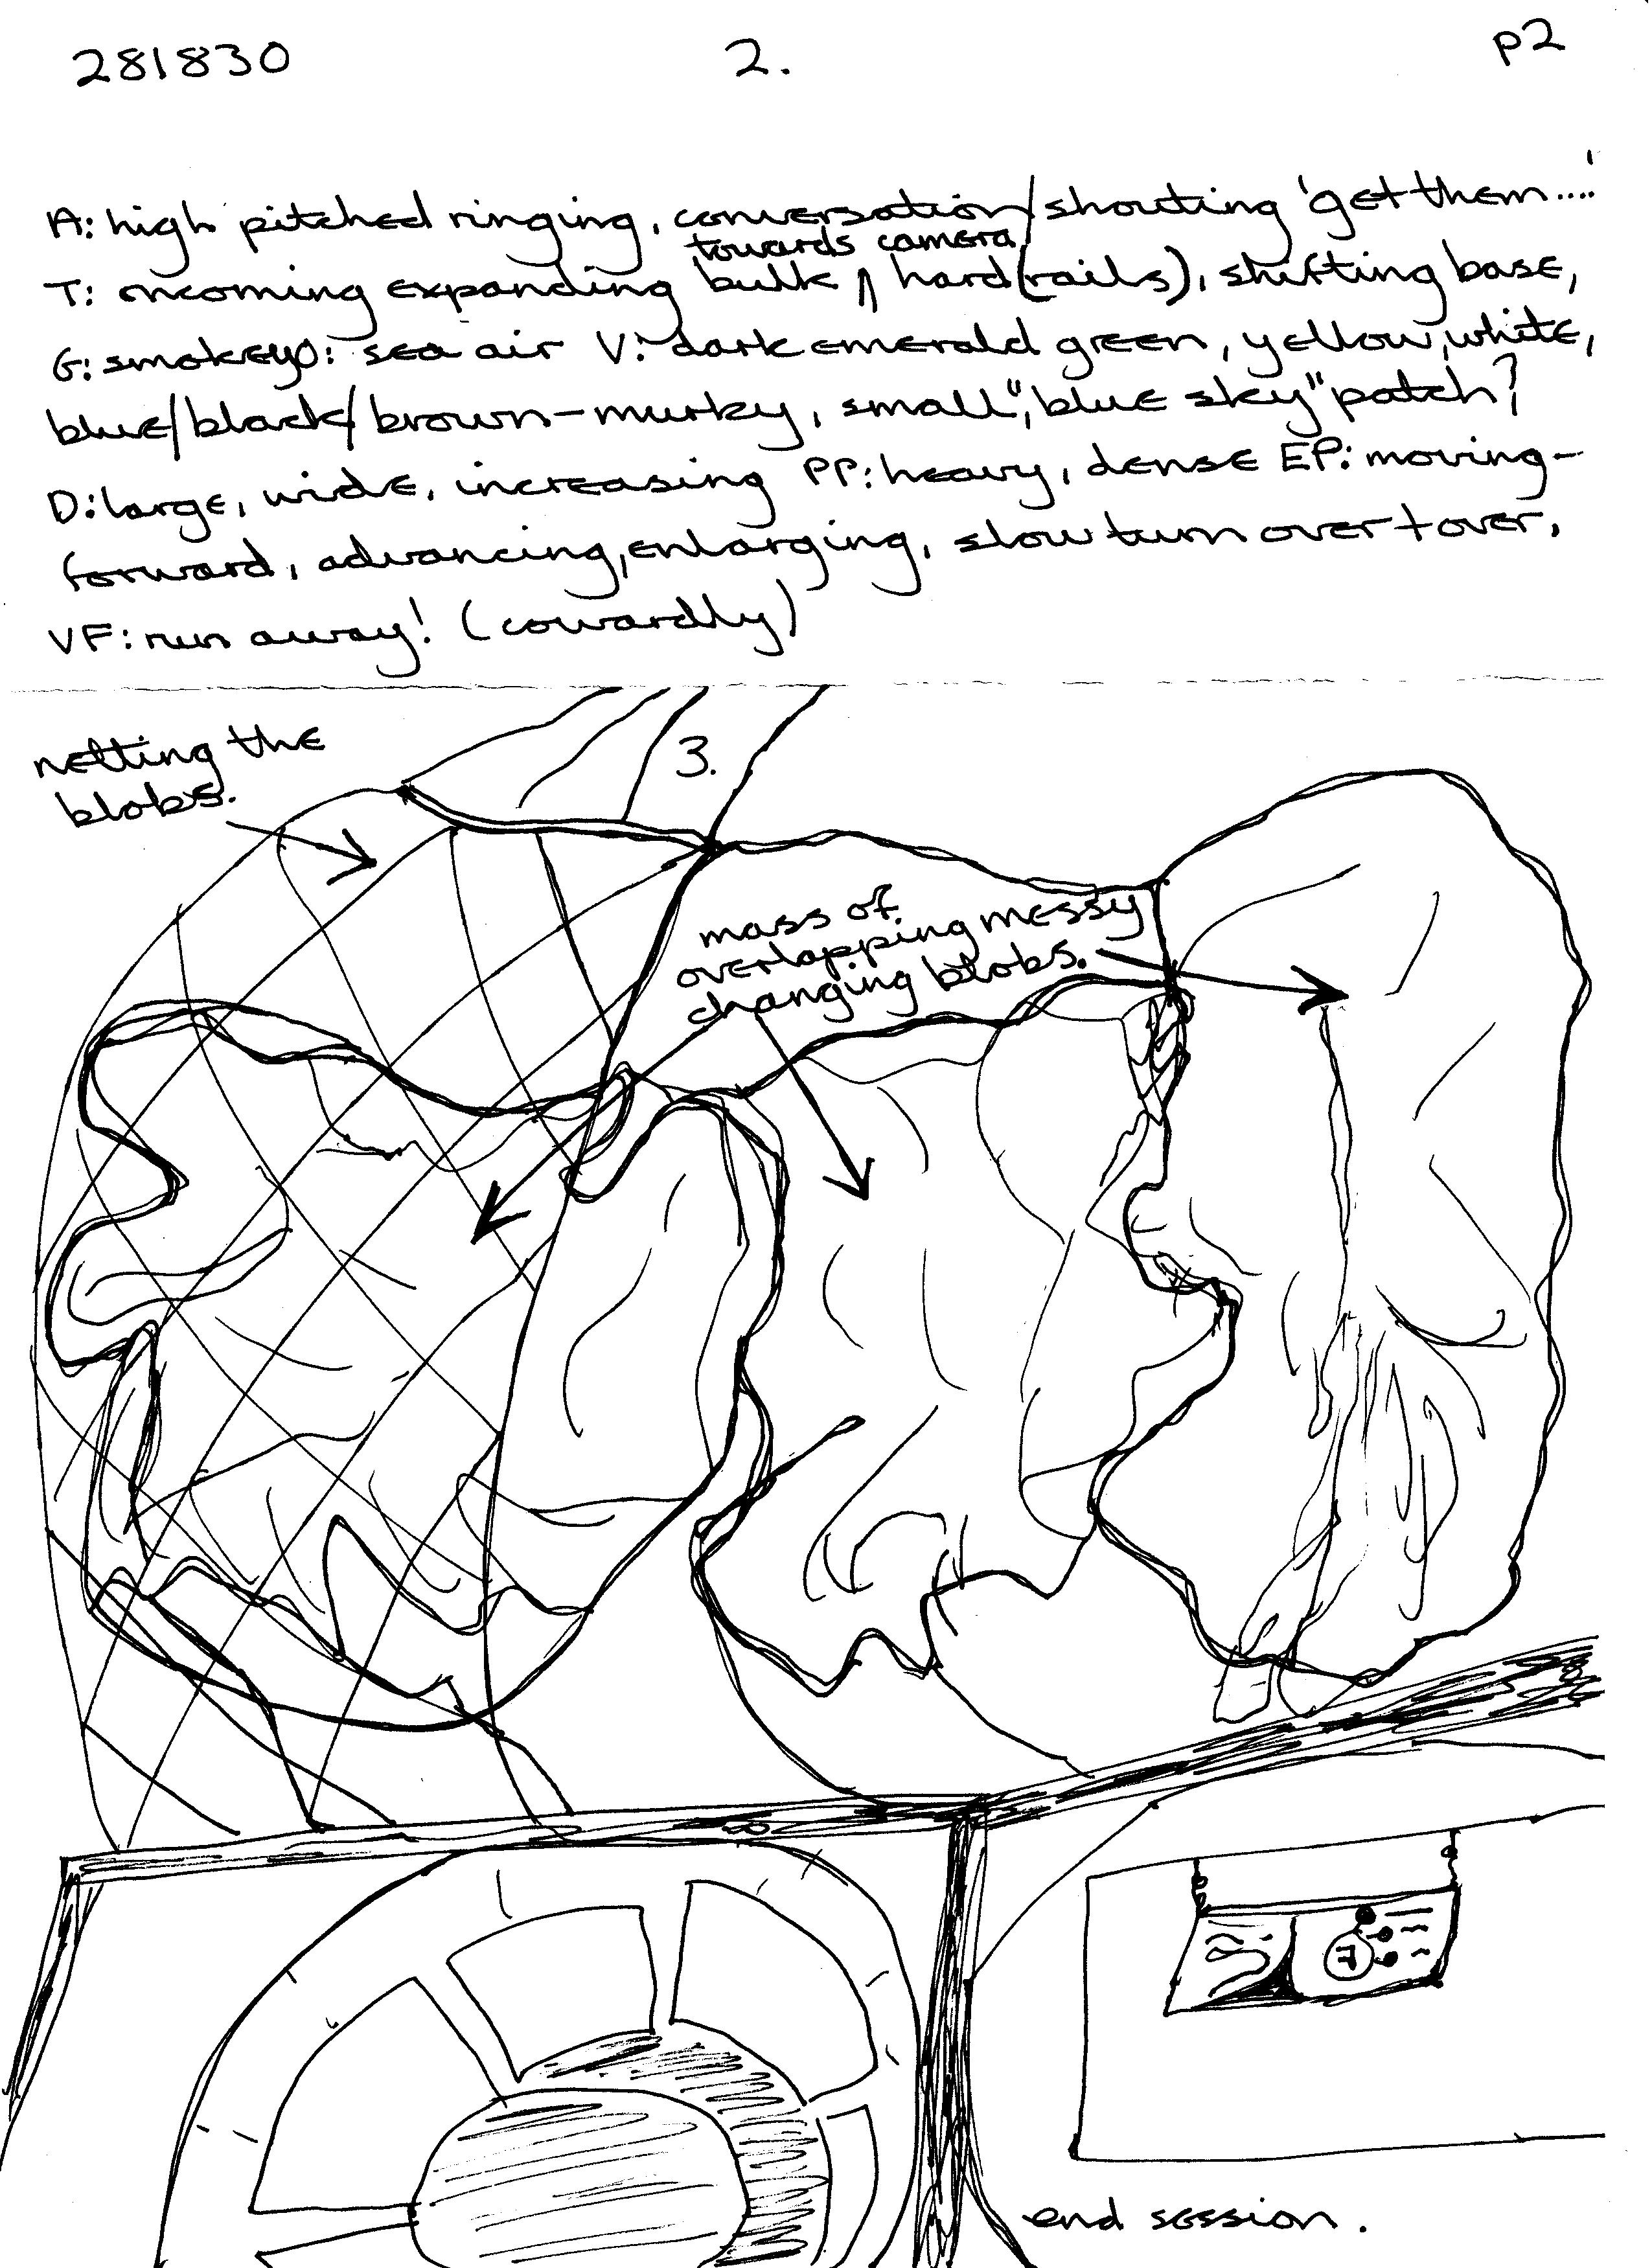 281830
2.
p2
A: high pitched ringing, conversation/shouting 'get them....'
towards camera
T: incoming expanding bulk ⋀ hard(rails), shifting base,
G: smokey O: sea air V: dark emerald green, yellow, white,
blue/black/brown-murky, small, "blue sky" patch?
D: large, wide, increasing PP: heavy, dense EP: moving-
forward, advancing, enlarging, slow turn over + over,
VF: run away! (cowardly)
netting the
blobs.
3.
mass of
overlapping messy
changing blobs.
end session.